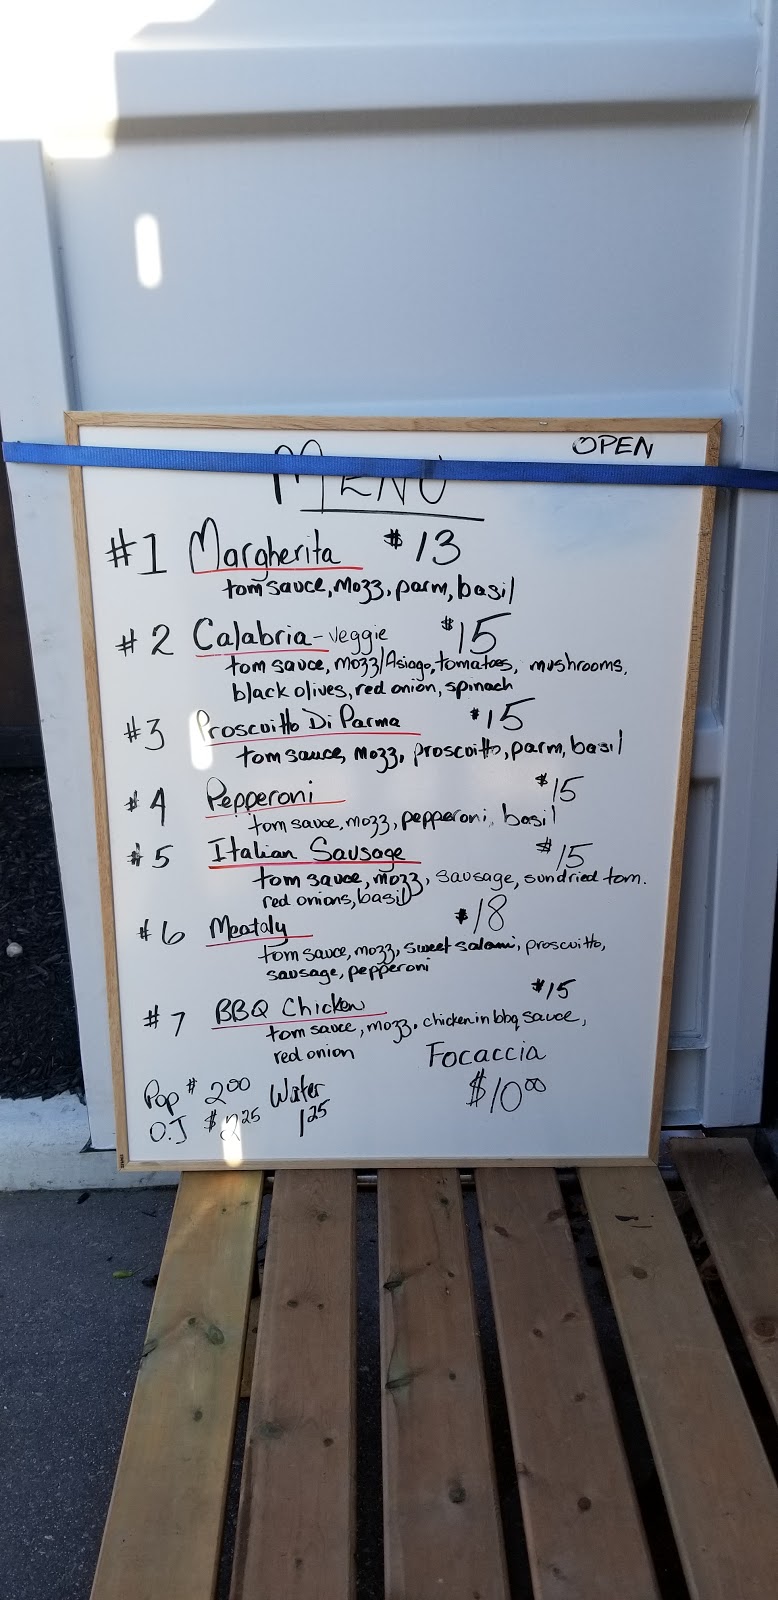 OPEN
MENU
#1 Margherita $13
tom sauce, mozz, parm, basil
#2 Calabria - veggie $15
tom sauce, mozz/Asiago, tomatoes, mushrooms,
black olives, red onion, spinach
#3 Proscuitto Di Parma $15
tom sauce, mozz, proscuitto, parm, basil
#4 Pepperoni $15
tom sauce, mozz, pepperoni, basil
#5 Italian Sausage $15
tom sauce, mozz, sausage, sundried tom.
red onions, basil
#6 Meataly $18
tom sauce, mozz, sweet salami, proscuitto,
sausage, pepperoni
#7 BBQ Chicken $15
tom sauce, mozz, chicken in bbq sauce,
red onion
Focaccia
$10.00
Pop $2.00 Water
O.J $2.25 1.25